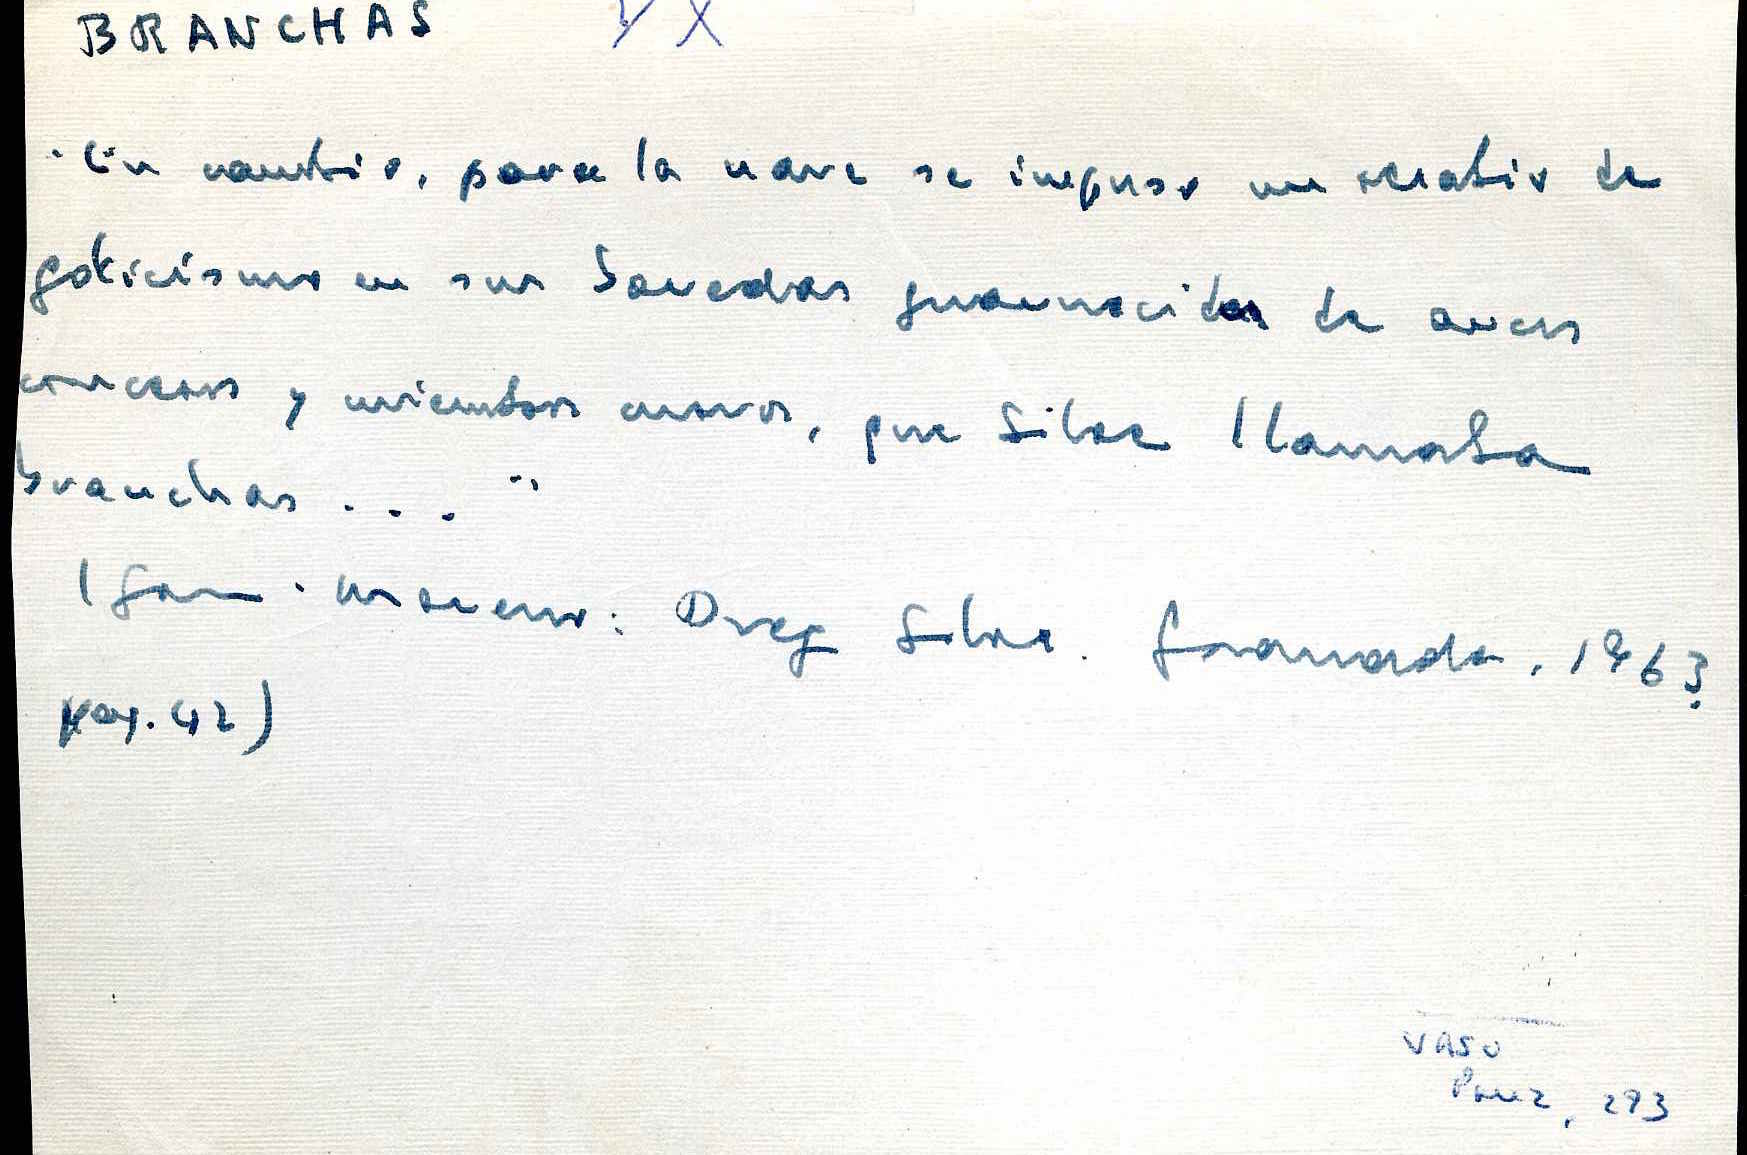 BRANCHAS
"En cambio, para la nave se impuso un resabio de
goticismo en sus bovedas guarnecidas de arcos
cruceros y miembros curvos, que Siloe llamaba
branchas . . . "
(Gom - Moreno: Dieg Siloe. Granada, 1963
pag. 42)
VASO
Ponz, 293